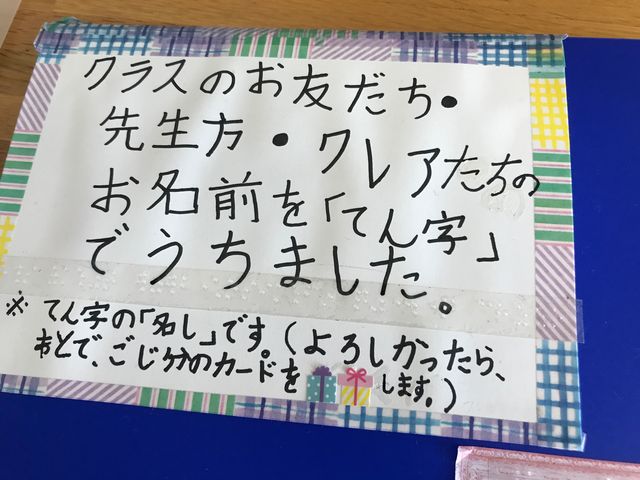 クラスのお友だち・
先生方・クレアたちの
お名前を「てん字」
でうちました。
※てん字の「名し」です。(よろしかったら、
あとで、ごじ分のカードを
します。)